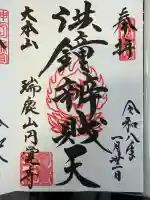 奉拝
令和八年
一月廿一日
洪鐘辨財天
大本山
瑞鹿山円覚寺